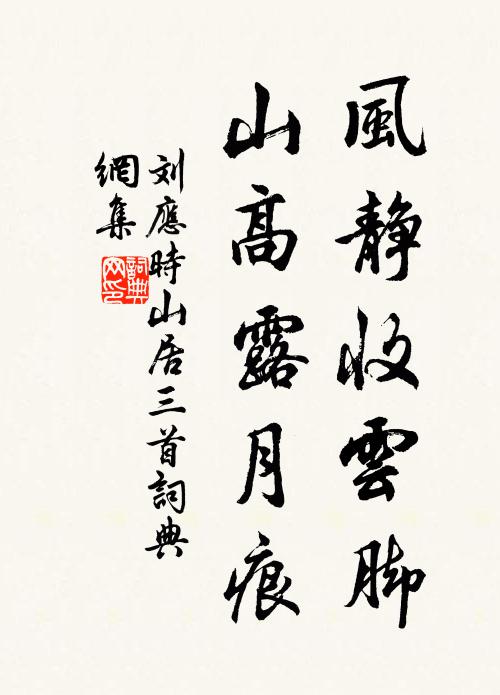 風靜收雲脚
山高露月痕
刘應時山居三首詞典
網集
詞典網印